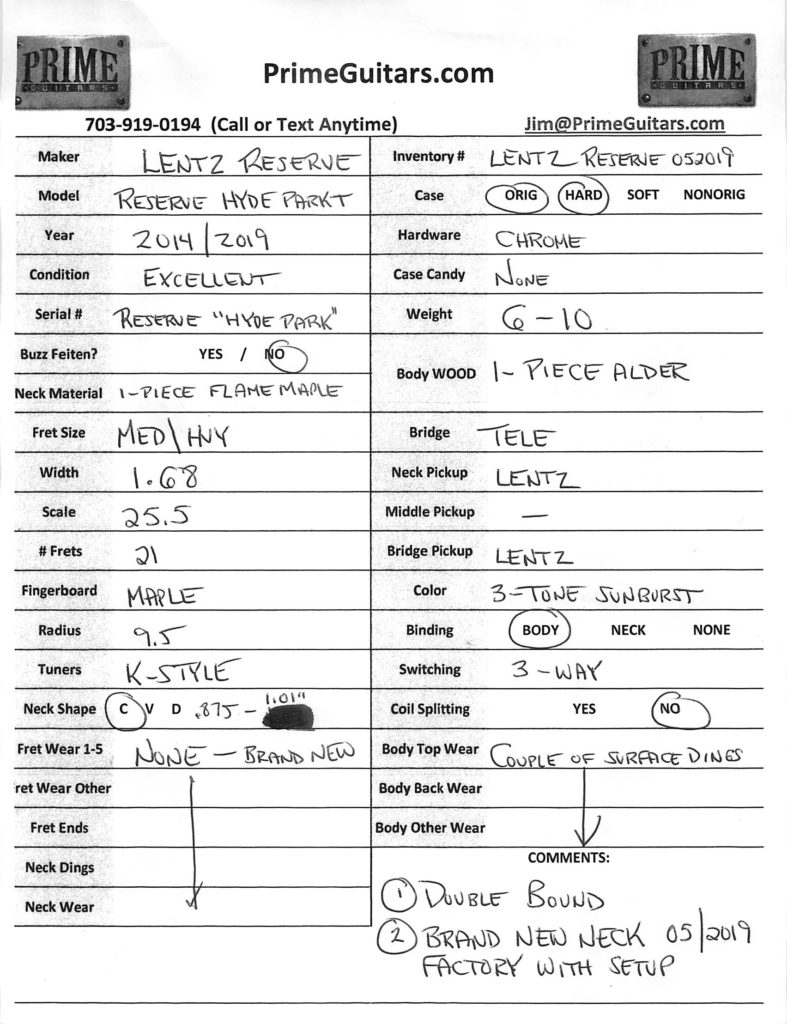 PRIME
GUITARS
PrimeGuitars.com
PRIME
GUITARS
703-919-0194 (Call or Text Anytime)
Jim@PrimeGuitars.com
Maker LENTZ RESERVE
Model RESERVE HYDE PARK T
Year 2014/2019
Condition EXCELLENT
Serial # RESERVE "HYDE PARK"
Buzz Feiten? YES / NO
Neck Material 1-PIECE FLAME MAPLE
Fret Size MED\HVY
Width 1.68
Scale 25.5
# Frets 21
Fingerboard MAPLE
Radius 9.5
Tuners K-STYLE
Neck Shape C V D .875 - 1.01"
Fret Wear 1-5 NONE - BRAND NEW
ret Wear Other
Fret Ends
Neck Dings
Neck Wear
Inventory # LENTZ RESERVE 052019
Case ORIG HARD SOFT NONORIG
Hardware CHROME
Case Candy NONE
Weight 6-10
Body WOOD 1-PIECE ALDER
Bridge TELE
Neck Pickup LENTZ
Middle Pickup —
Bridge Pickup LENTZ
Color 3-TONE SUNBURST
Binding BODY NECK NONE
Switching 3-WAY
Coil Splitting YES NO
Body Top Wear COUPLE OF SURFACE DINGS
Body Back Wear
Body Other Wear
COMMENTS:
1 DOUBLE BOUND
2 BRAND NEW NECK 05/2019
FACTORY WITH SETUP